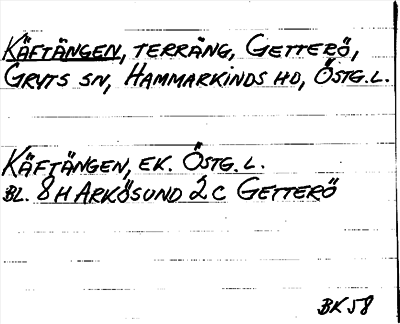 KÄFTÄNGEN, TERRÄNG, GETTERÖ,
GRYTS SN, HAMMARKINDS HD, ÖSTG.L.
KÄFTÄNGEN, EK. ÖSTG.L.
BL. 8H ARKÖSUND 2C GETTERÖ
BK 58